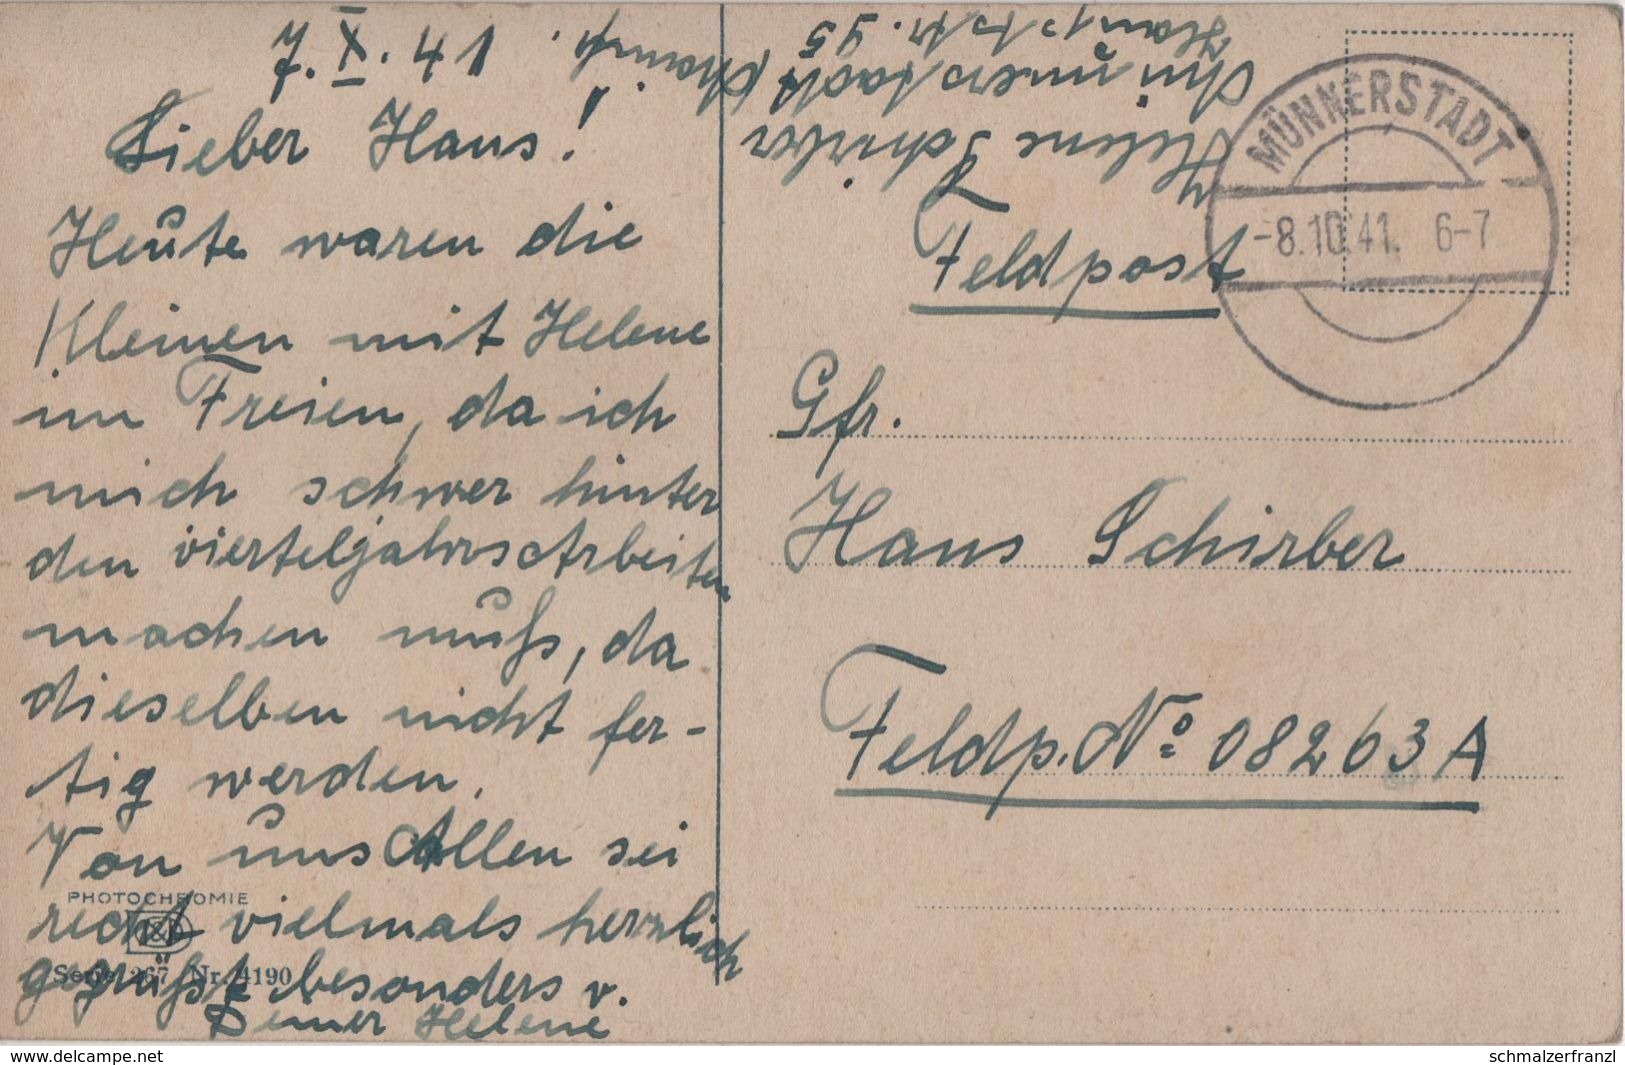 7. X. 41.
Lieber Hans!
Heute waren die
Kleinen mit Helene
im Freien, da ich
mich schwer hinter
den vierteljahrsArbeiten
machen muß, da
dieselben nicht fer-
tig werden.
Von uns Allen sei
recht vielmals herzlich
gegrüßt besonders v.
Deiner Helene
PHOTOCHROMIE
Serie 267 Nr. 4190
Helene Schirber
Münnerstadt
Hauptstr. 95
MÜNNERSTADT
-8.10.41. 6-7
Feldpost
Gfr.
Hans Schirber
Feldp. No 08263A
www.delcampe.net
schmalzerfranzl